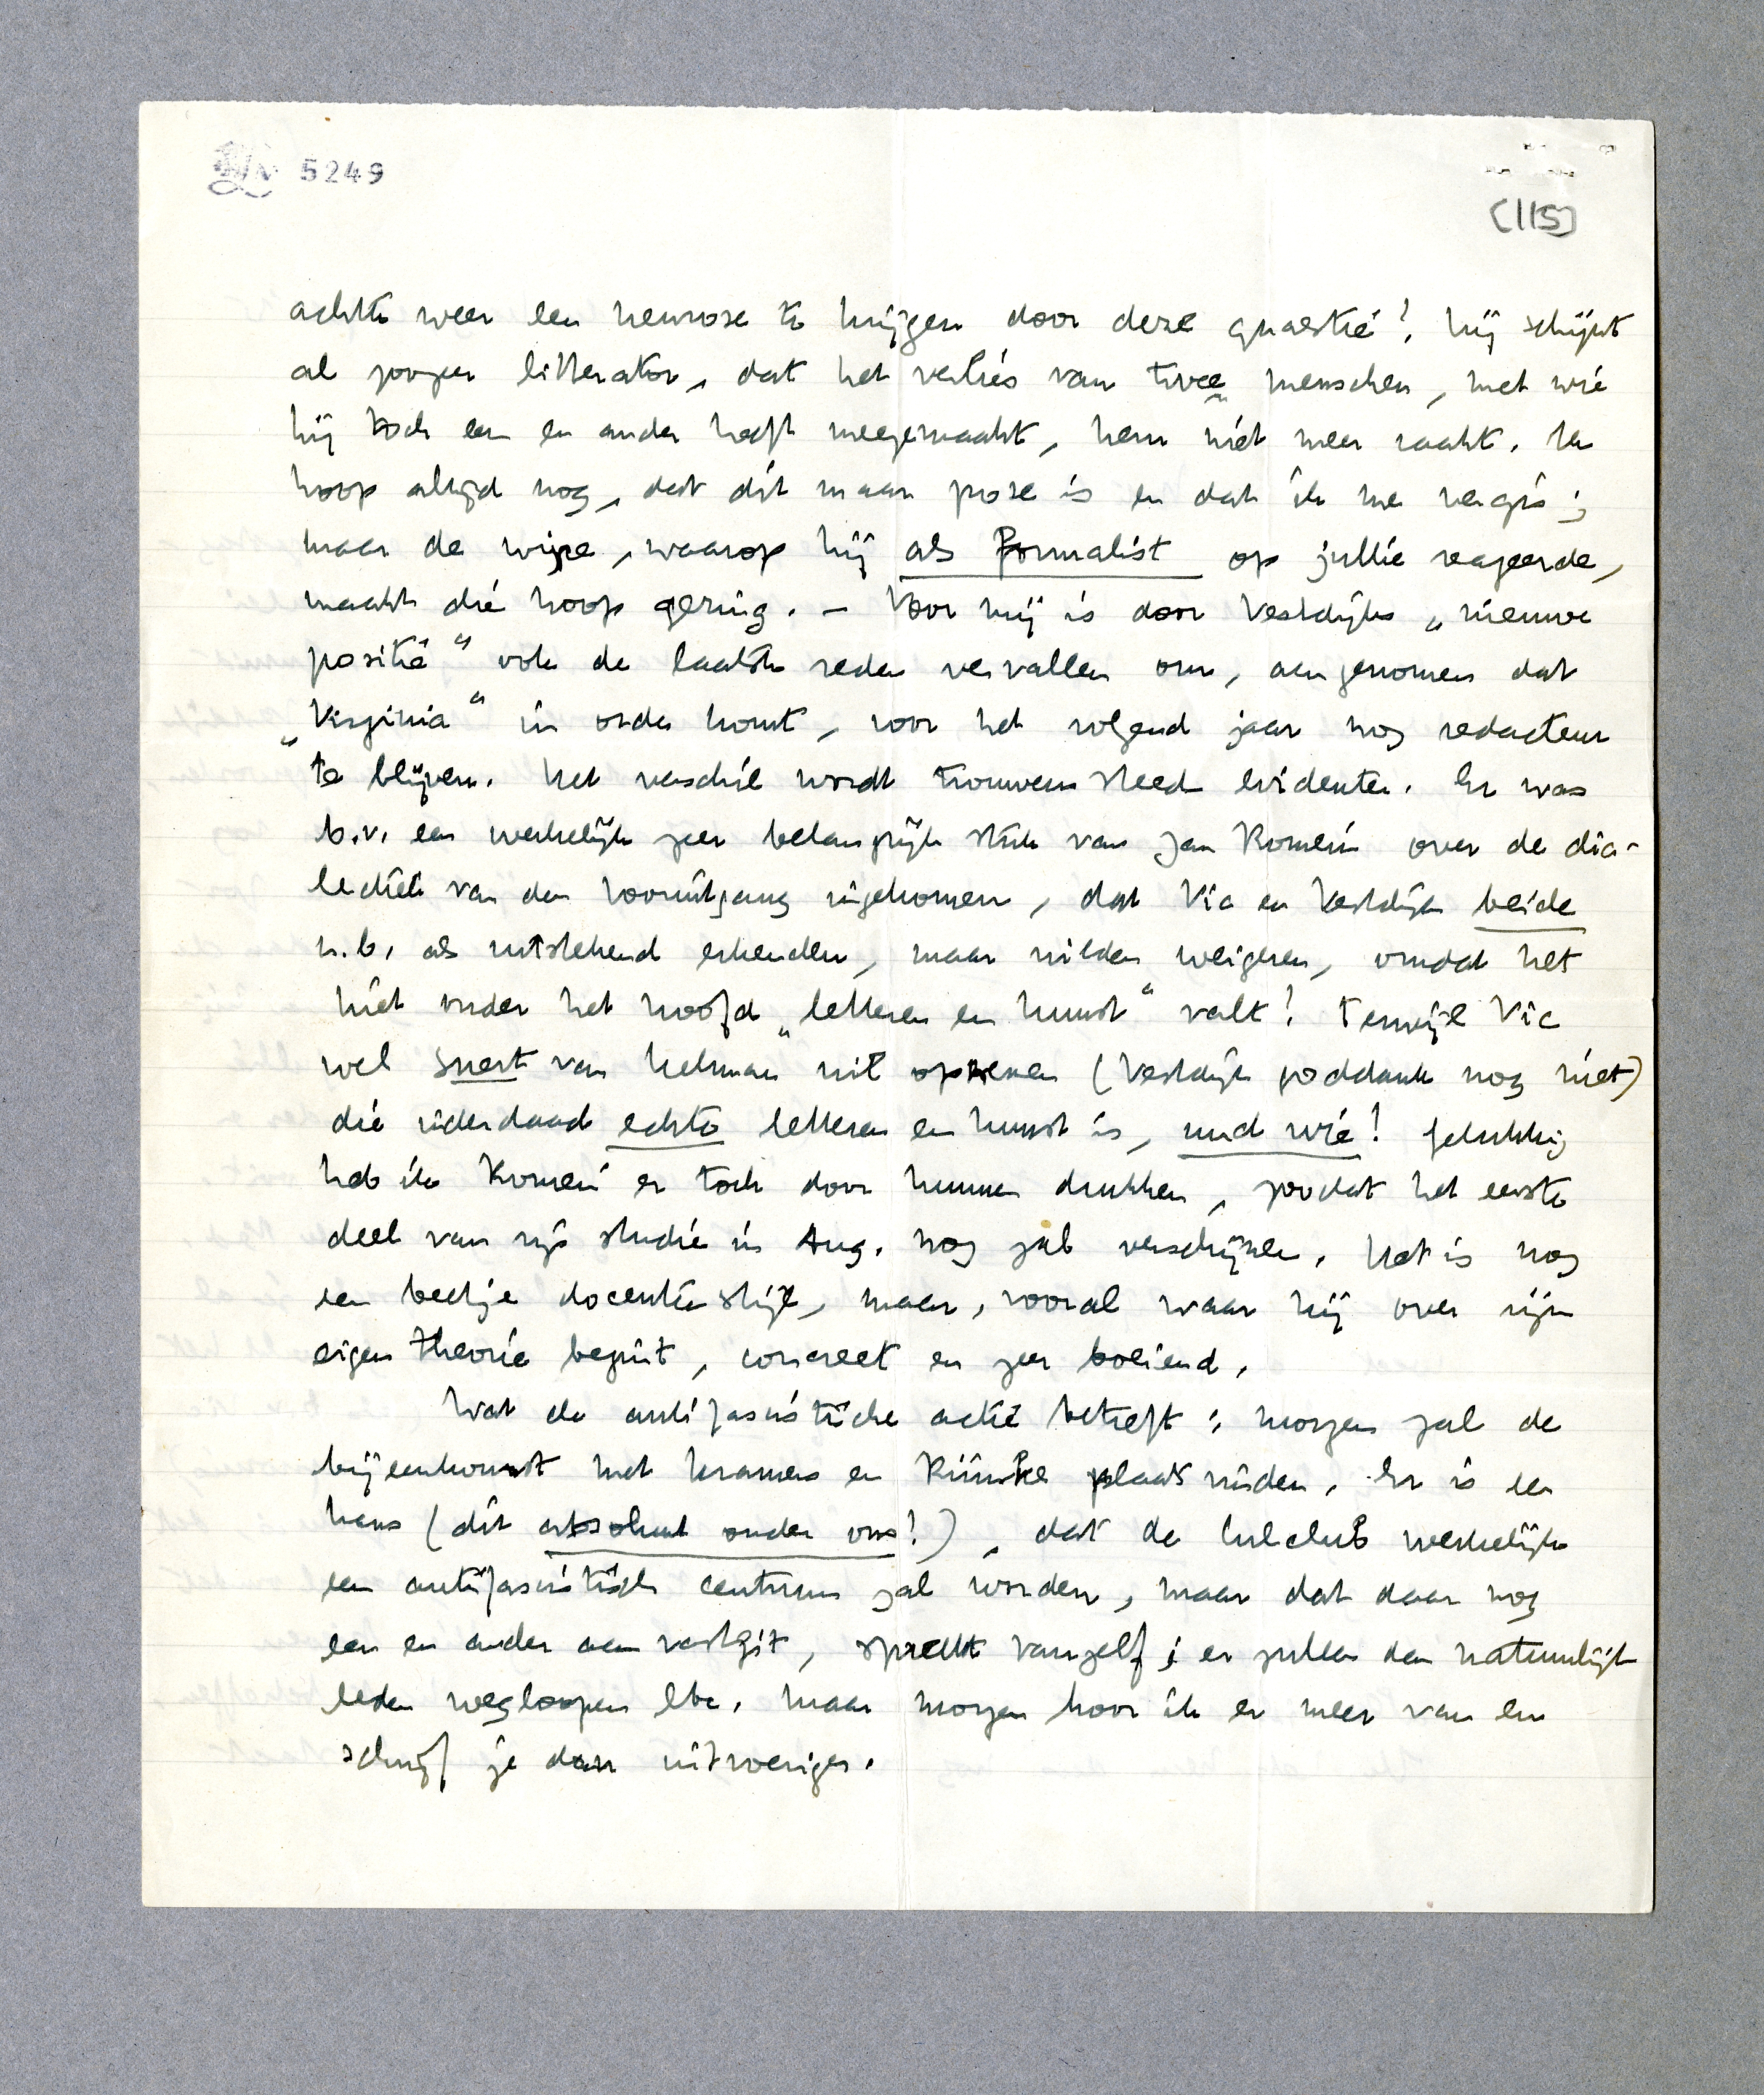 5249
(115)
achtte weer een neurose te krijgen door deze quaestie! Hij schijnt
al zoozeer litterator, dat het verlies van twee menschen, met wie
hij toch een en ander heeft meegemaakt, hem niet meer raakt. Ik
hoop altijd nog, dat dit maar pose is en dat ik me vergis;
maar de wijze, waarop hij als formalist op jullie reageerde,
maakt die hoop gering. – Voor mij is door Vestdijks „nieuwe
positie" ook de laatste reden vervallen om, aangenomen dat
„Virginia" in orde komt, voor het volgend jaar nog redacteur
te blijven. Het verschil wordt trouwens steeds evidenter. Er was
b.v. een werkelijk zeer belangrijk stuk van Jan Romein over de dia-
lectiek van den vooruitgang ingekomen, dat Vic en Vestdijk beide
n.b. als uitstekend erkenden, maar wilden weigeren, omdat het
niet onder het hoofd „letteren en kunst" valt! Terwijl Vic
wel snert van Helman wil opnemen (Vestdijk goddank nog niet)
die inderdaad echte letteren en kunst is, und wie! Gelukkig
heb ik Romein er toch door kunnen drukken, zoodat het eerste
deel van zijn studie in Aug. nog zal verschijnen. Het is nog
een beetje docentenstijl, maar, vooral waar hij over zijn
eigen theorie begint, concreet en zeer boeiend.
Wat de antifascistische actie betreft: morgen zal de
bijeenkomst met Kramers en Rümke plaats vinden. Er is een
kans (dit absoluut onder ons!), dat de lulclub werkelijk
een antifascistisch centrum zal worden, maar dat daar nog
een en ander aan vastzit, spreekt vanzelf; er zullen dan natuurlijk
leden wegloopen etc. Maar morgen hoor ik er meer van en
schrijf je dan uitvoeriger.